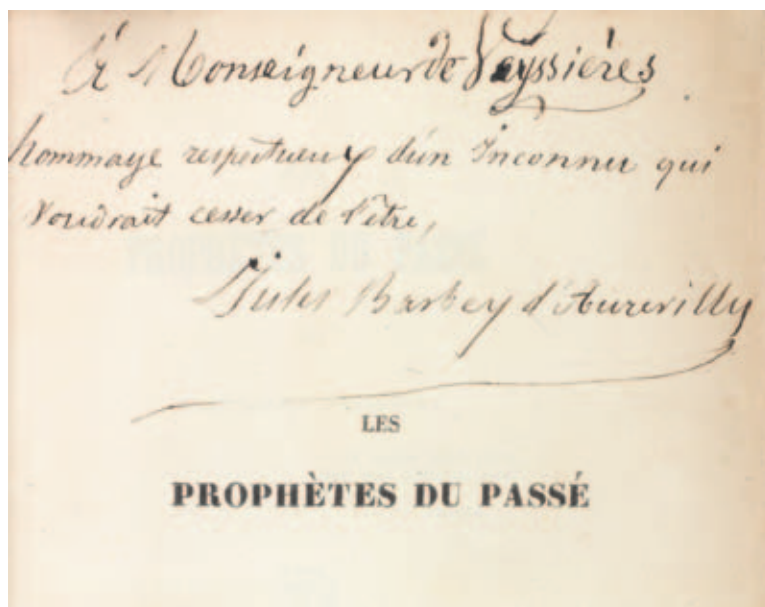 À Monseigneur de Veyssières
hommage respectueux d'un Inconnu qui
voudrait cesser de l'être,
Jules Barbey d'Aurevilly
LES
PROPHÈTES DU PASSÉ